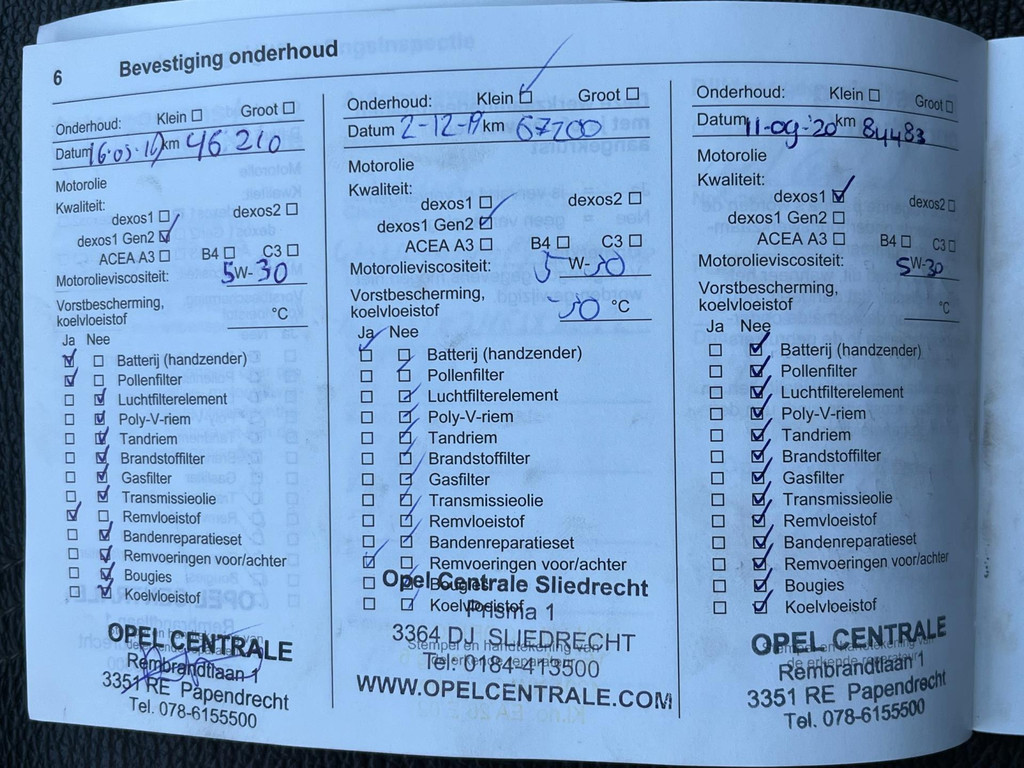 6 Bevestiging onderhoud
Onderhoud: Klein Groot
Datum km 46210
Motorolie
Kwaliteit:
dexos1 dexos2
dexos1 Gen2
ACEA A3 B4 C3
Motorolieviscositeit: 5W-30
Vorstbescherming,
koelvloeistof °C
Ja Nee
Batterij (handzender)
Pollenfilter
Luchtfilterelement
Poly-V-riem
Tandriem
Brandstoffilter
Gasfilter
Transmissieolie
Remvloeistof
Bandenreparatieset
Remvoeringen voor/achter
Bougies
Koelvloeistof
OPEL CENTRALE
Rembrandtlaan 1
3351 RE Papendrecht
Tel. 078-6155500
Onderhoud: Klein Groot
Datum 2-12-19 km 67200
Motorolie
Kwaliteit:
dexos1 dexos2
dexos1 Gen2
ACEA A3 B4 C3
Motorolieviscositeit: 5 W-30
Vorstbescherming,
koelvloeistof °C
Ja Nee
Batterij (handzender)
Pollenfilter
Luchtfilterelement
Poly-V-riem
Tandriem
Brandstoffilter
Gasfilter
Transmissieolie
Remvloeistof
Bandenreparatieset
Remvoeringen voor/achter
Bougies
Koelvloeistof
Opel Centrale Sliedrecht
Prisma 1
3364 DJ SLIEDRECHT
Stempel en handtekening van
de erkende reparateur
Tel. 0184-413500
WWW.OPELCENTRALE.COM
Onderhoud: Klein Groot
Datum 11-09-'20 km 84483
Motorolie
Kwaliteit:
dexos1 dexos2
dexos1 Gen2
ACEA A3 B4 C3
Motorolieviscositeit: 5W-30
Vorstbescherming,
koelvloeistof °C
Ja Nee
Batterij (handzender)
Pollenfilter
Luchtfilterelement
Poly-V-riem
Tandriem
Brandstoffilter
Gasfilter
Transmissieolie
Remvloeistof
Bandenreparatieset
Remvoeringen voor/achter
Bougies
Koelvloeistof
OPEL CENTRALE
Stempel en handtekening van
de erkende reparateur
Rembrandtlaan 1
3351 RE Papendrecht
Tel. 078-6155500